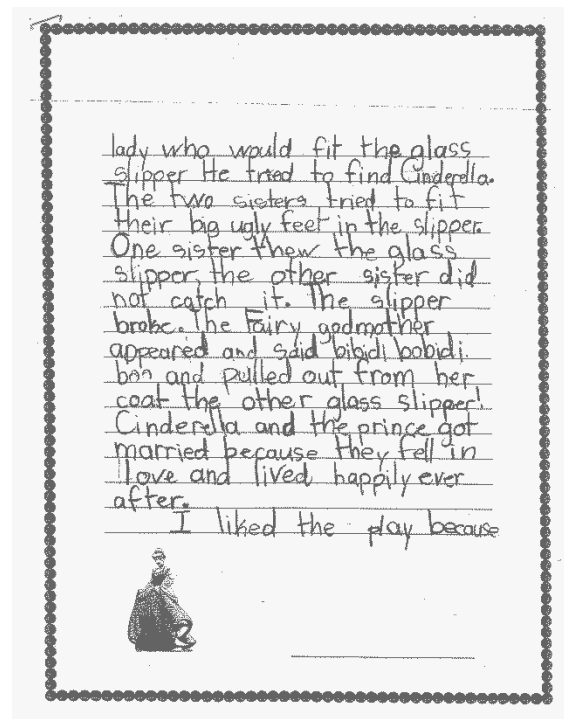 lady who would fit the glass
slipper He tried to find Cinderella.
The two sisters tried to fit
their big ugly feet in the slipper.
One sister thew the glass
slipper, the other sister did
not catch it. The slipper
broke. The Fairy godmother
appeared and said bibidi bobidi
boo and pulled out from her
coat the other glass slipper!
Cinderella and the prince got
married because they fell in
love and lived happily ever
after.
I liked the play because